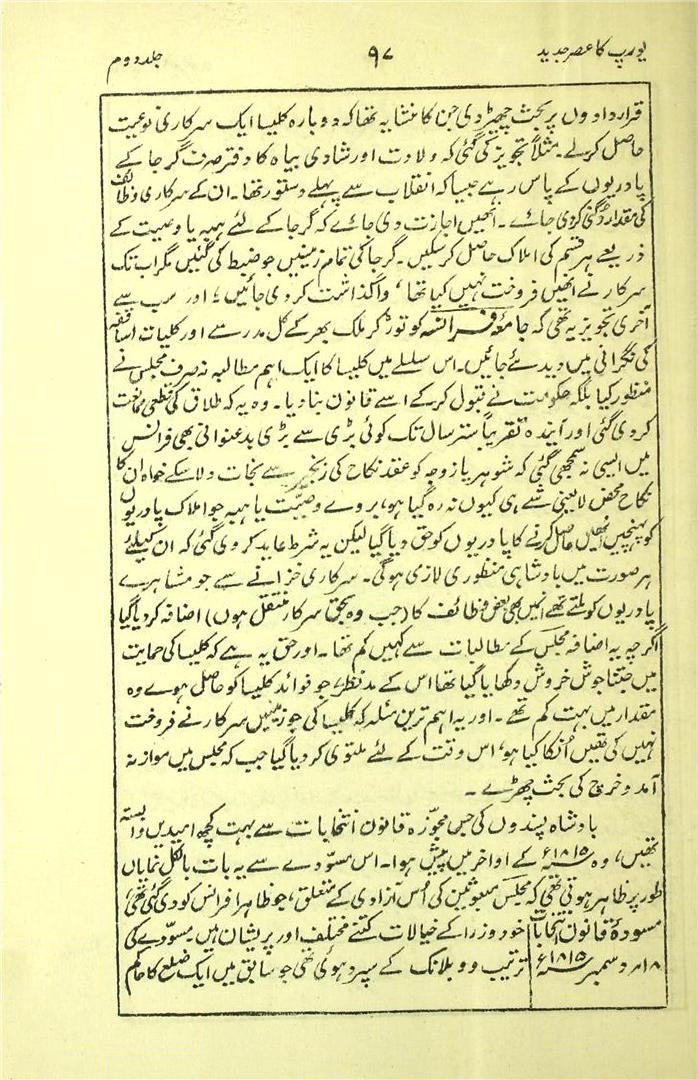 یورپ کا عصر جدید ۹۷ جلد دوم
قرار دادوں پر بحث چھیڑ دی جن کا منشا یہ تھا کہ دوبارہ کلیسا ایک سرکاری نوعیت
حاصل کر لے۔ مثلاً تجویز کی گئی کہ ولادت اور شادی بیاہ کا دفتر صرف گرجا کے
پادریوں کے پاس رہے جیسا کہ انقلاب سے پہلے دستور تھا۔ ان کے سرکاری وظائف
کی مقدار دُگنی کر دی جائے۔ انھیں اجازت دی جائے کہ گرجا کے لئے ہبہ یا وصیت کے
ذریعے ہر قسم کی املاک حاصل کر سکیں۔ گرجا کی تمام زمینیں جو ضبط کی گئیں مگر اب تک
سرکار نے انھیں فروخت نہیں کیا تھا، واگذاشت کر دی جائیں؛ اور سب سے
آخری تجویز یہ تھی کہ جامعۂ فرانسہ کو توڑ کر ملک بھر کے کل مدرسے اور کلیات اساقفہ
کی نگرانی میں دیدئے جائیں۔ اس سلسلے میں کلیسا کا ایک اہم مطالبہ نہ صرف مجلس نے
منظور کیا بلکہ حکومت نے قبول کر کے اسے قانون بنا دیا۔ وہ یہ کہ طلاق کی قطعی ممانعت
کر دی گئی اور آیندہ تقریباً ستر سال تک کوئی بڑی سے بڑی بدعنوانی بھی فرانس
میں ایسی نہ سمجھی گئی کہ شوہر یا زوجہ کو عقد نکاح کی زنجیر سے نجات دلا سکے خواہ ان کا
نکاح محض لایعنی شے ہی کیوں نہ رہ گیا ہو، بروے وصیّت یا ہبہ جو املاک پادریوں
کو پہنچیں انھیں حاصل کرنے کا پادریوں کو حق دیا گیا لیکن یہ شرط عاید کر دی گئی کہ ان کیلئے
ہر صورت میں بادشاہی منظوری لازی ہوگی۔ سرکاری خزانے سے جو مشاہرے
پادریوں کو ملتے تھے انہیں بھی بعض وظائف کا (جب وہ بحق سرکار منتقل ہوں) اضافہ کر دیا گیا
اگرچہ یہ اضافہ مجلس کے مطالبات سے کہیں کم تھا۔ اور حق یہ ہے کہ کلیسا کی حمایت
میں جتنا جوش خروش دکھایا گیا تھا اس کے مدنظر، جو فوائد کلیسا کو حاصل ہوے وہ
مقدار میں بہت کم تھے۔ اور یہ اہم ترین مسئلہ کہ کلیسا کی جو زمینیں سرکار نے فروخت
نہیں کی تھیں اُن کا کیا ہو، اس وقت کے لئے ملتوی کر دیا گیا جب کہ مجلس میں موازنہ
آمد و خرچ کی بحث چھڑے۔
بادشاہ پسندوں کی جس مجوّزہ قانون انتخابات سے بہت کچھ امیدیں وابستہ
تھیں، وہ ۱۸۱۵ء کے اواخر میں پیش ہوا۔ اس مسوّدے سے یہ بات بالکل نمایاں
طور پر ظاہر ہوتی تھی کہ مجلس مبعوثین کی اُس آزادی کے متعلق، جو ظاہرا فرانس کو دی گئی تھی،
مسودۂ قانون انتخابات خود وزرا کے خیالات کتنے مختلف اور پریشان ہیں۔ مسوّدے کی
۱۸ دسمبر ۱۸۱۵ء ترتیب ووبلانک کے سپرد ہوئی تھی جو سابق میں ایک ضلع کا حاکم